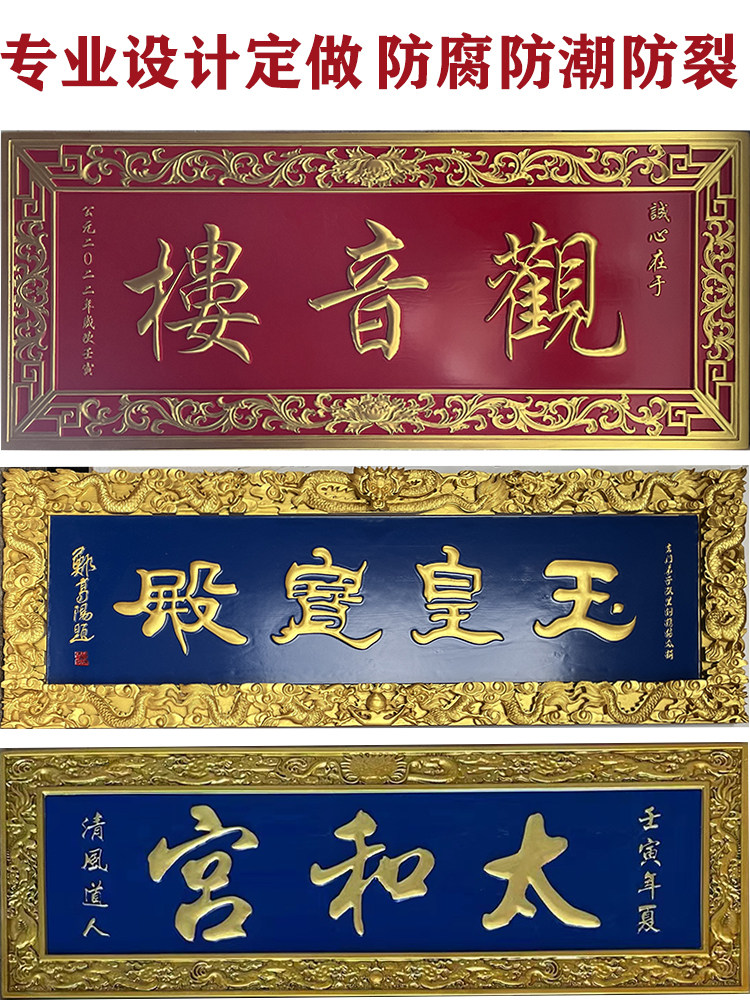 专业设计定做 防腐防潮防裂
誠心在于
觀音樓
公元二〇二二年歲次壬寅
玉皇寶殿
壬寅年夏
太和宮
清風道人